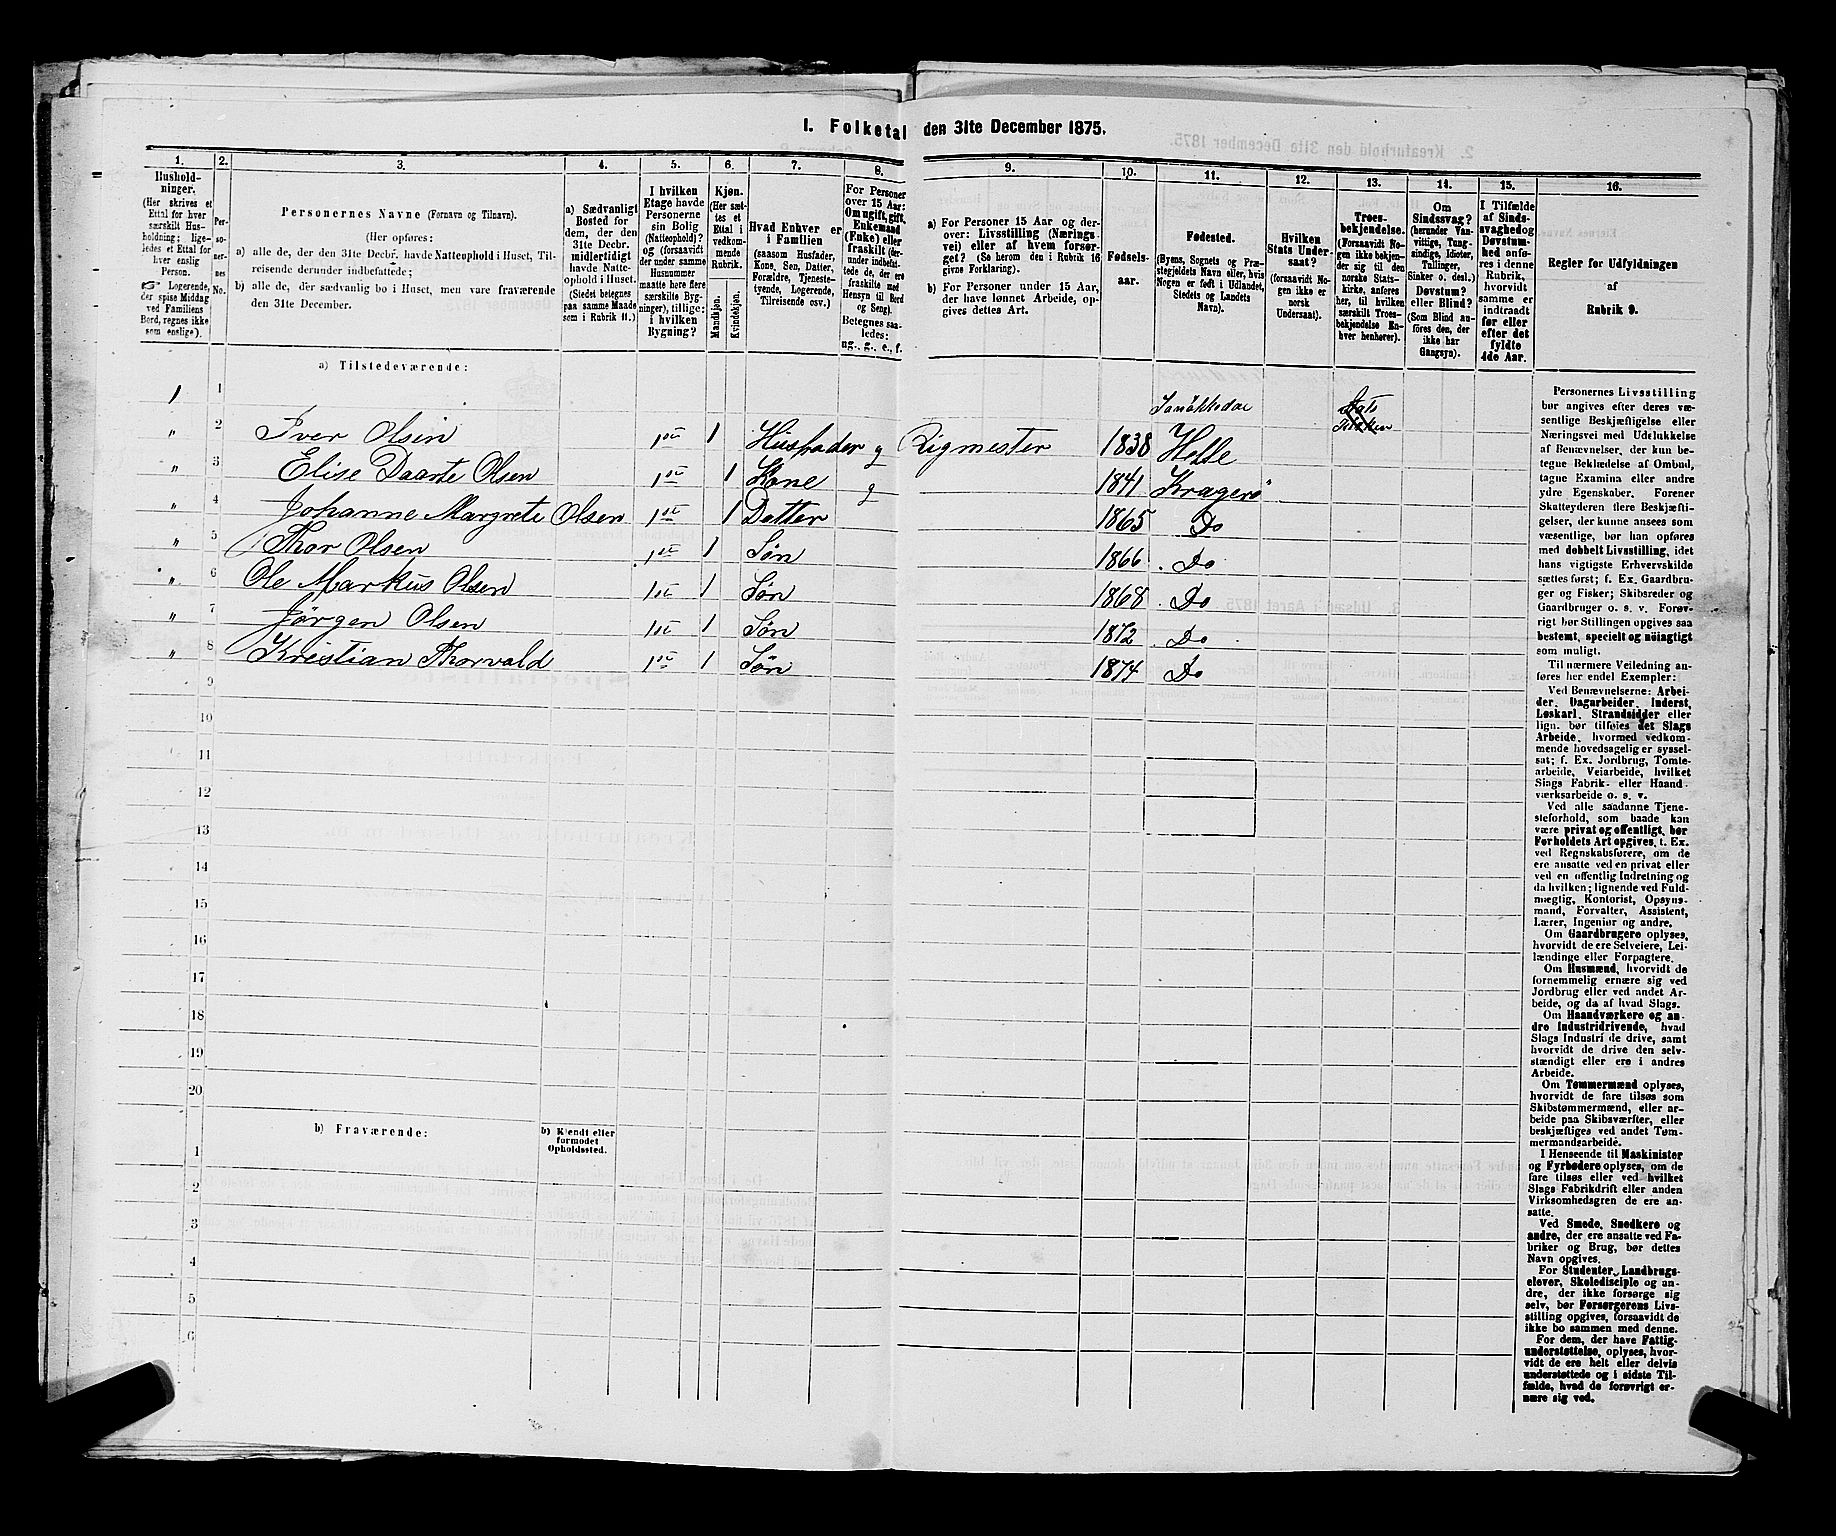 1. Folketal den 31te December 1875.
1. 2. 3. 4. 5. 6. 7. 8. 9. 10. 11. 12. 13. 14. 15. 16.
Husholdninger.
(Her skrives et
Ettal for hver
særskilt Hus-
holdning; lige-
ledes et Ettal for
hver enslig
Person.
☞ Logerende,
der spise Middag
ved Familiens
Bord, regnes ikke
som enslige).
Per-
so-
ner-
nes
No.
Personernes Navne (Fornavn og Tilnavn).
(Her opføres:
a) alle de, der den 31te Decbr. havde Natteophold i Huset, Til-
reisende derunder indbefattede;
b) alle de, der sædvanlig bo i Huset, men vare fraværende
den 31te December.
a) Sædvanligt
Bosted for
dem, der den
31te Decbr.
midlertidigt
havde Natte-
ophold i Huset.
(Stedet betegnes
paa samme Maade
som i Rubrik 11.)
I hvilken
Etage havde
Personerne
sin Bolig
(Natteophold)?
og (forsaavidt
der under samme
Husnummer
maatte høre flere
særskilte Byg-
ninger), tillige:
i hvilken
Bygning?
Kjøn.
(Her sæt-
tes et
Ettal i
vedkom-
mende
Rubrik.
Mandkjøn.
Kvindekjøn.
Hvad Enhver er
i Familien
(saasom Husfader,
Kone, Søn, Datter,
Forældre, Tjeneste-
tyende, Logerende,
Tilreisende osv.)
For Personer
over 15 Aar:
Om ugift, gift,
Enkemand
(Enke) eller
fraskilt (der-
under indbefat-
tede de, der ere
fraskilte med
Hensyn til Bord
og Seng).
Betegnes saa-
ledes:
ug., g., e., f.
a) For Personer 15 Aar og der-
over: Livsstilling (Nærings-
vei) eller af hvem forsør-
get? (Se herom den i Rubrik 16
givne Forklaring).
b) For Personer under 15 Aar,
der have lønnet Arbeide, op-
gives dettes Art.
Fødsels-
aar.
Fødested.
(Byens, Sognets og Præ-
stegjeldets Navn eller, hvis
Nogen er født i Udlandet,
Stedets og Landets
Navn).
Hvilken
Stats Under-
saat?
(forsaavidt No-
gen ikke er
norsk
Undersaat).
Troes-
bekjendelse.
(Forsaavidt No-
gen ikke bekjen-
der sig til den
norske Stats-
kirke, anføres
her, til hvilken
særskilt Troes-
bekjendelse En-
hver henhører).
Om
Sindssvag?
(herunder Van-
vittige, Tung-
sindige, Idioter,
Tullinger,
Sinker o. desl.)
Døvstum?
eller Blind?
(Som Blind an-
føres den, der
ikke har
Gangsyn).
I Tilfælde
af Sinds-
svaghed og
Døvstum-
hed anfø-
res i denne
Rubrik,
hvorvidt
samme er
indtraadt
før eller
efter det
fyldte
4de Aar.
Regler for Udfyldningen
af
Rubrik 9.
a) Tilstedeværende:
1 1
" 2 Iver Olsen 1ste 1 Husfader g Rigmester 1838 Helle
" 3 Elise Daarte Olsen 1ste 1 Kone g 1841 Kragerö
" 4 Johanne Margrete Olsen 1ste 1 Datter 1865 Do
" 5 Thor Olsen 1ste 1 Søn 1866 Do
" 6 Ole Markus Olsen 1ste 1 Søn 1868 Do
" 7 Jørgen Olsen 1ste 1 Søn 1872 Do
" 8 Kristian Thorvald 1ste 1 Søn 1874 Do
9
10
11
12
13
14
15
16
17
18
19
20
b) Fraværende:
b) Kjendt eller
formodet
Opholdssted.
1
2
3
4
5
6
Personernes Livsstilling
bør angives efter deres væ-
sentlige Beskjæftigelse eller
Næringsvei med Udelukkelse
af Benævnelser, der kun be-
tegne Beklædelse af Ombud,
tagne Examina eller andre
ydre Egenskaber. Forener
Skatteyderen flere Beskjæfti-
gelser, der kunne ansees som
væsentlige, bør han opføres
med dobbelt Livsstilling, idet
hans vigtigste Erhvervskilde
sættes først; f. Ex. Gaardbru-
ger og Fisker; Skibsreder og
Gaardbruger o. s. v. Forøv-
rigt bør Stillingen opgives saa
bestemt, specielt og nöiagtigt
som muligt.
Til nærmere Veiledning an-
føres her endel Exempler:
Ved Benævnelserne: Arbei-
der, Dagarbeider, Inderst,
Løskarl, Strandsidder eller
lign. bør tilføies det Slags
Arbeide, hvormed vedkom-
mende hovedsagelig er syssel-
sat; f. Ex. Jordbrug, Tomte-
arbeide, Veiarbeide, hvilket
Slags Fabrik- eller Haand-
værksarbeide o. s. v.
Ved alle saadanne Tjene-
steforhold, som baade kan
være privat og offentligt, bør
Forholdets Art opgives, t. Ex.
ved Regnskabsførere, om de
ere ansatte ved en privat eller
ved en offentlig Indretning og
da hvilken; lignende ved Fuld-
mægtig, Kontorist, Opsyns-
mand, Forvalter, Assistent,
Lærer, Ingeniør og andre.
Om Gaardbrugere oplyses,
hvorvidt de ere Selveiere, Lei-
lændinge eller Forpagtere.
Om Husmænd, hvorvidt de
fornemmelig ernære sig ved
Jordbrug eller ved andet Ar-
beide, og da af hvad Slags.
Om Haandværkere og an-
dre Industridrivende, hvad
Slags Industri de drive, samt
hvorvidt de drive den selv-
stændigt eller ere i andres
Arbeide.
Om Tømmermænd oplyses,
hvorvidt de fare tilsøs som
Skibstømmermænd, eller ar-
beide paa Skibsværfter, eller
beskjæftiges ved andet Tøm-
mermandsarbeide.
I Henseende til Maskinister
og Fyrbødere oplyses, om de
fare tilsøs eller ved hvilket
Slags Fabrikdrift eller anden
Virksomhedsgren de ere an-
satte.
Ved Smede, Snedkere og
andre, der ere ansatte ved Fa-
briker og Brug, bør dettes
Navn opgives.
For Studenter, Landbrugs-
elever, Skoledisciple og an-
dre, der ikke forsørge sig
selv, bør Forsørgerens Livs-
stilling opgives, forsaavidt de
ikke bo sammen med denne.
For dem, der have Fattig-
understøttelse, oplyses, hvor-
vidt de ere helt eller delvis
understøttede og i sidste Til-
fælde, hvad de forøvrigt er-
nære sig ved.